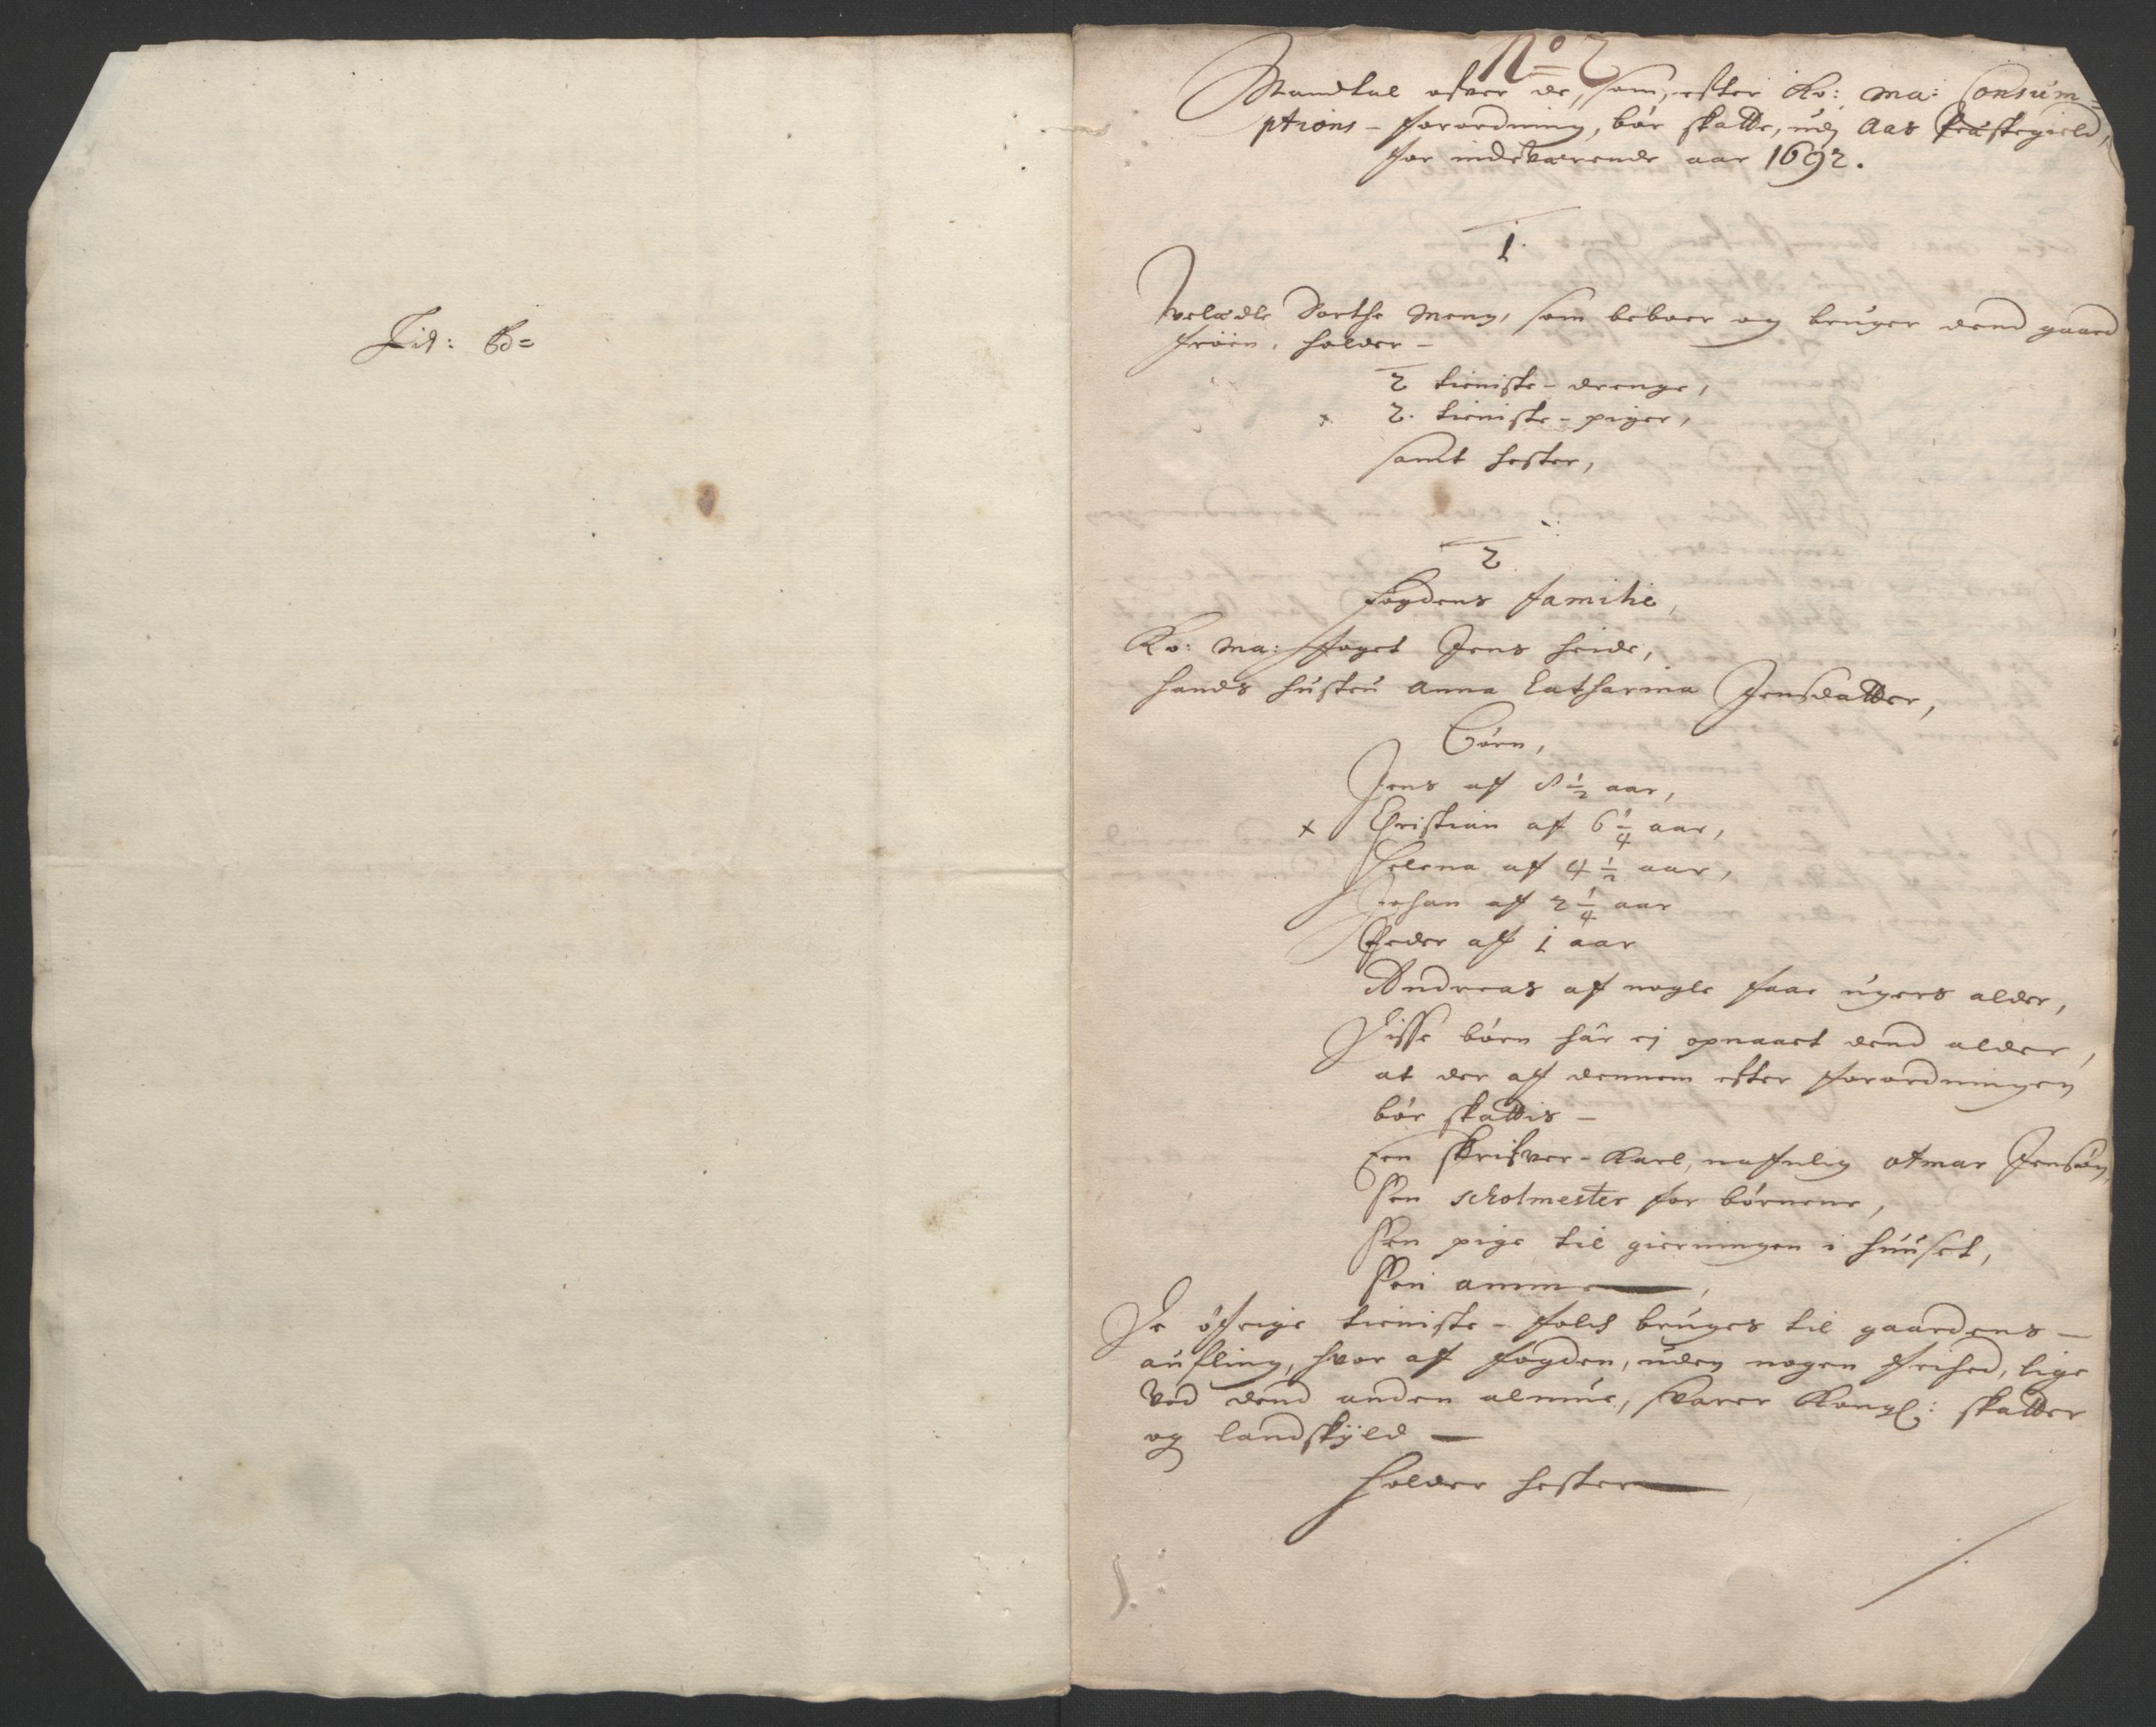 Lit: B=
No 2
Mandtal ofver de, som, efter Ko: Ma: Consum=
ptions-forordning, bør skatte, udj Aas Præstegield,
for indeværende aar 1692.
1.
Velædle Dorthe Meng, som beboer og bruger dend gaard
Frøen, holder-
2 tieniste-drenge,
x 2. tieniste-piger,
samt hester,
2
Fogdens familie,
Ko: Ma: Foget Jens Heide,
hands hustru Anna Catharina Jensdatter,
Børn,
Jens af 8 1/2 aar,
x Christian af 6 1/4 aar,
Helena af 4 1/2 aar,
Johan af 2 1/4 aar
Peder aff 1 aar
Andreas af nogle faae ugers alder,
Disse børn har ej opnaaet dend alder,
at der aff dennem efter forordningen
bør skattis-
Een skrifver-karl, nafnlig otmar Jensøn,
Een scholmester for børnene,
Een pige til gierningen i huuset,
Een amme,
De øfrige tieniste-folch bruges til gaardens-
aufling, hvor af fogden, uden nogen frihed, lige
ved dend anden almue, svarer Kongl: skatter
og landskÿld-
Holder hester